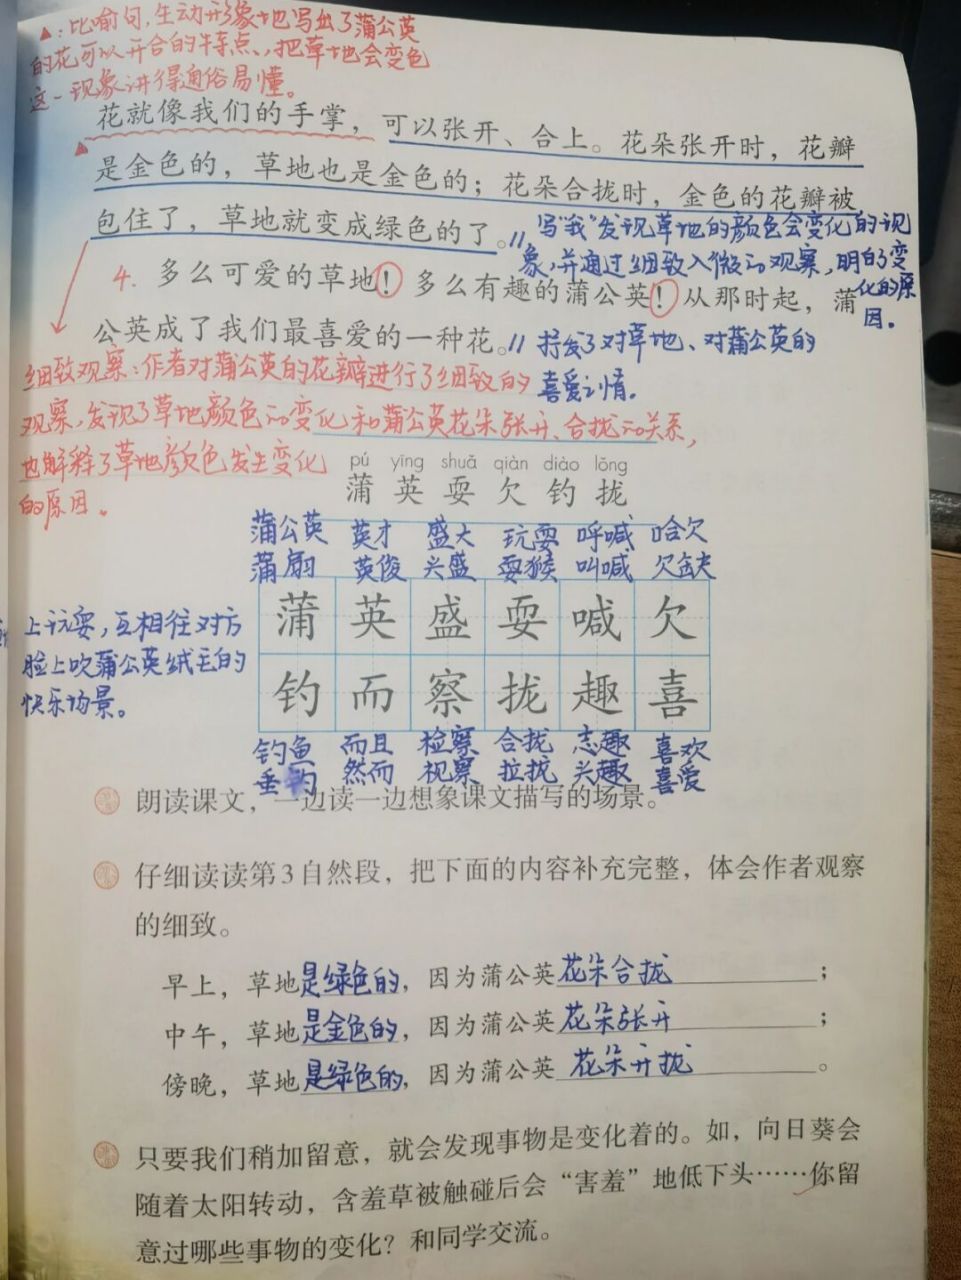 ▲:比喻句,生动形象地写出了蒲公英
的花可以开合的特点,把草地会变色
这一现象讲得通俗易懂。
花就像我们的手掌，可以张开、合上。花朵张开时，花瓣
是金色的，草地也是金色的；花朵合拢时，金色的花瓣被
包住了，草地就变成绿色的了。//
写“我”发现草地的颜色会变化的现
象,并通过细致入微的观察,明白了变
化的原
因。
4. 多么可爱的草地！多么有趣的蒲公英！从那时起，蒲
公英成了我们最喜爱的一种花。//
抒发了对草地、对蒲公英的
喜爱之情。
细致观察:作者对蒲公英的花瓣进行了细致的
观察,发现了草地颜色的变化和蒲公英花朵张开、合拢的关系,
也解释了草地颜色发生变化
的原因。
pú yīng shuǎ qiàn diào lǒng
蒲 英 耍 欠 钓 拢
蒲公英 英才 盛大 玩耍 呼喊 哈欠
蒲扇 英俊 兴盛 耍猴 叫喊 欠缺
蒲 英 盛 耍 喊 欠
钓 而 察 拢 趣 喜
上玩耍,互相往对方
脸上吹蒲公英绒毛的
快乐场景。
钓鱼 而且 检察 合拢 志趣 喜欢
垂钓 然而 视察 拉拢 兴趣 喜爱
朗读课文，一边读一边想象课文描写的场景。
仔细读读第3自然段，把下面的内容补充完整，体会作者观察
的细致。
早上，草地是绿色的，因为蒲公英花朵合拢；
中午，草地是金色的，因为蒲公英花朵张开；
傍晚，草地是绿色的，因为蒲公英花朵开拢。
只要我们稍加留意，就会发现事物是变化着的。如，向日葵会
随着太阳转动，含羞草被触碰后会“害羞”地低下头……你留
意过哪些事物的变化？和同学交流。